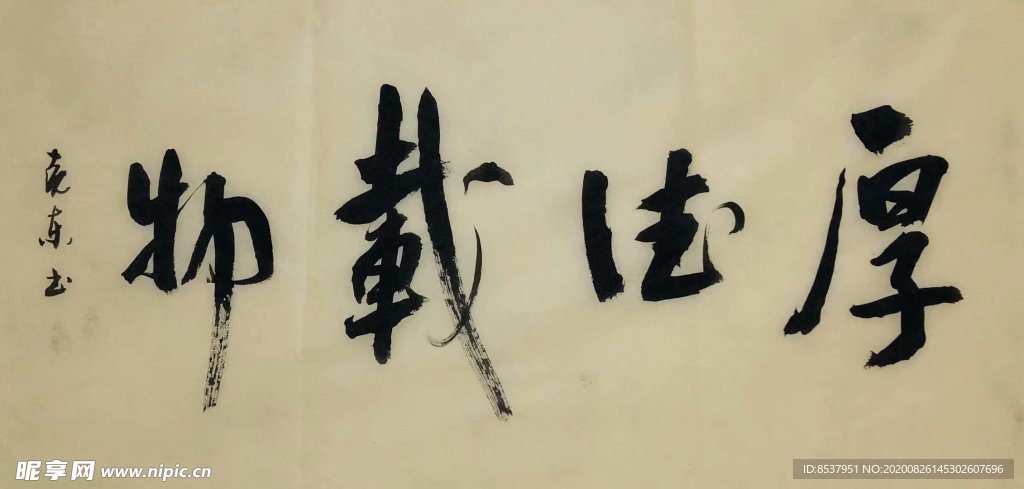 厚德載物
克东书
昵享网 www.nipic.cn
ID:8537951 NO:20200826145302607696